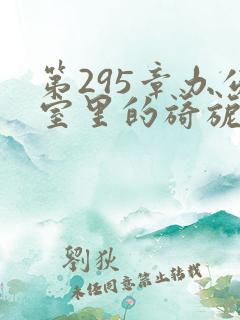 第295章办公
室里的旖旎
劉狄
未经同意禁止转载